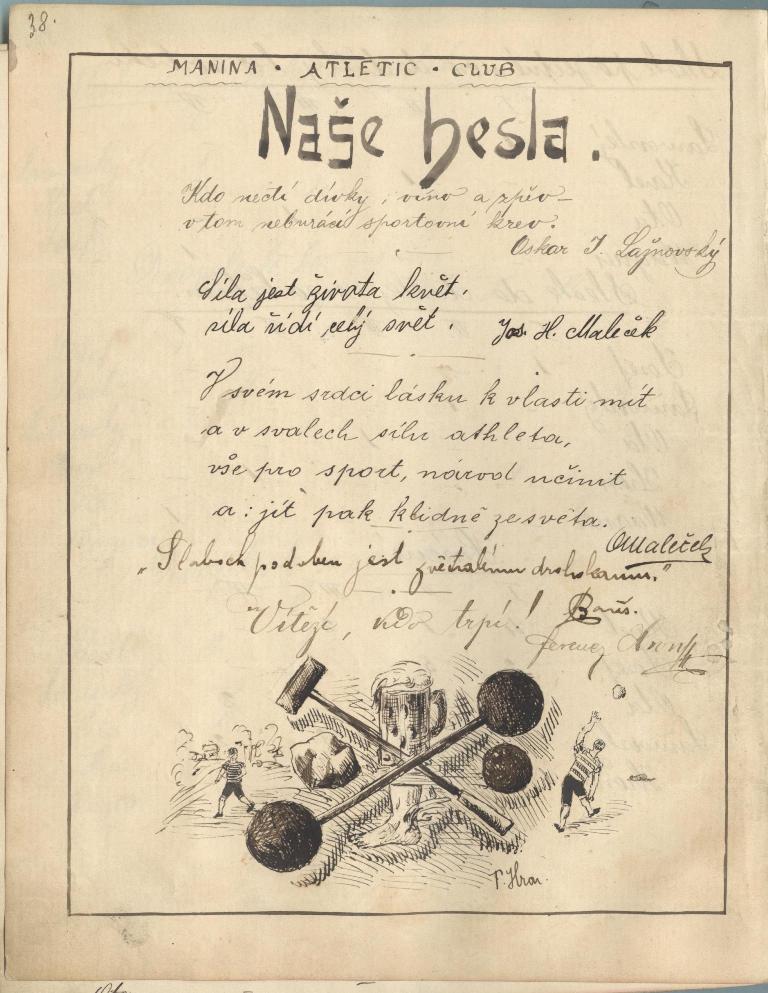 38.
MANINA • ATLETIC • CLUB
Naše hesla.
Kdo nectí dívky, víno a zpěv –
v tom neburácí sportovní krev.
Oskar J. Lažnovský
Síla jest života květ.
síla řídí celý svět. Jos. H. Maleček
V svém srdci lásku k vlasti mít
a v svalech sílu athleta,
vše pro sport, národ učinit
a jít pak klidně ze světa.
OMaleček
„Slaboch podoben jest zvětralému
Vítězí, kdo trpí!
Ferenc
F. Hron.